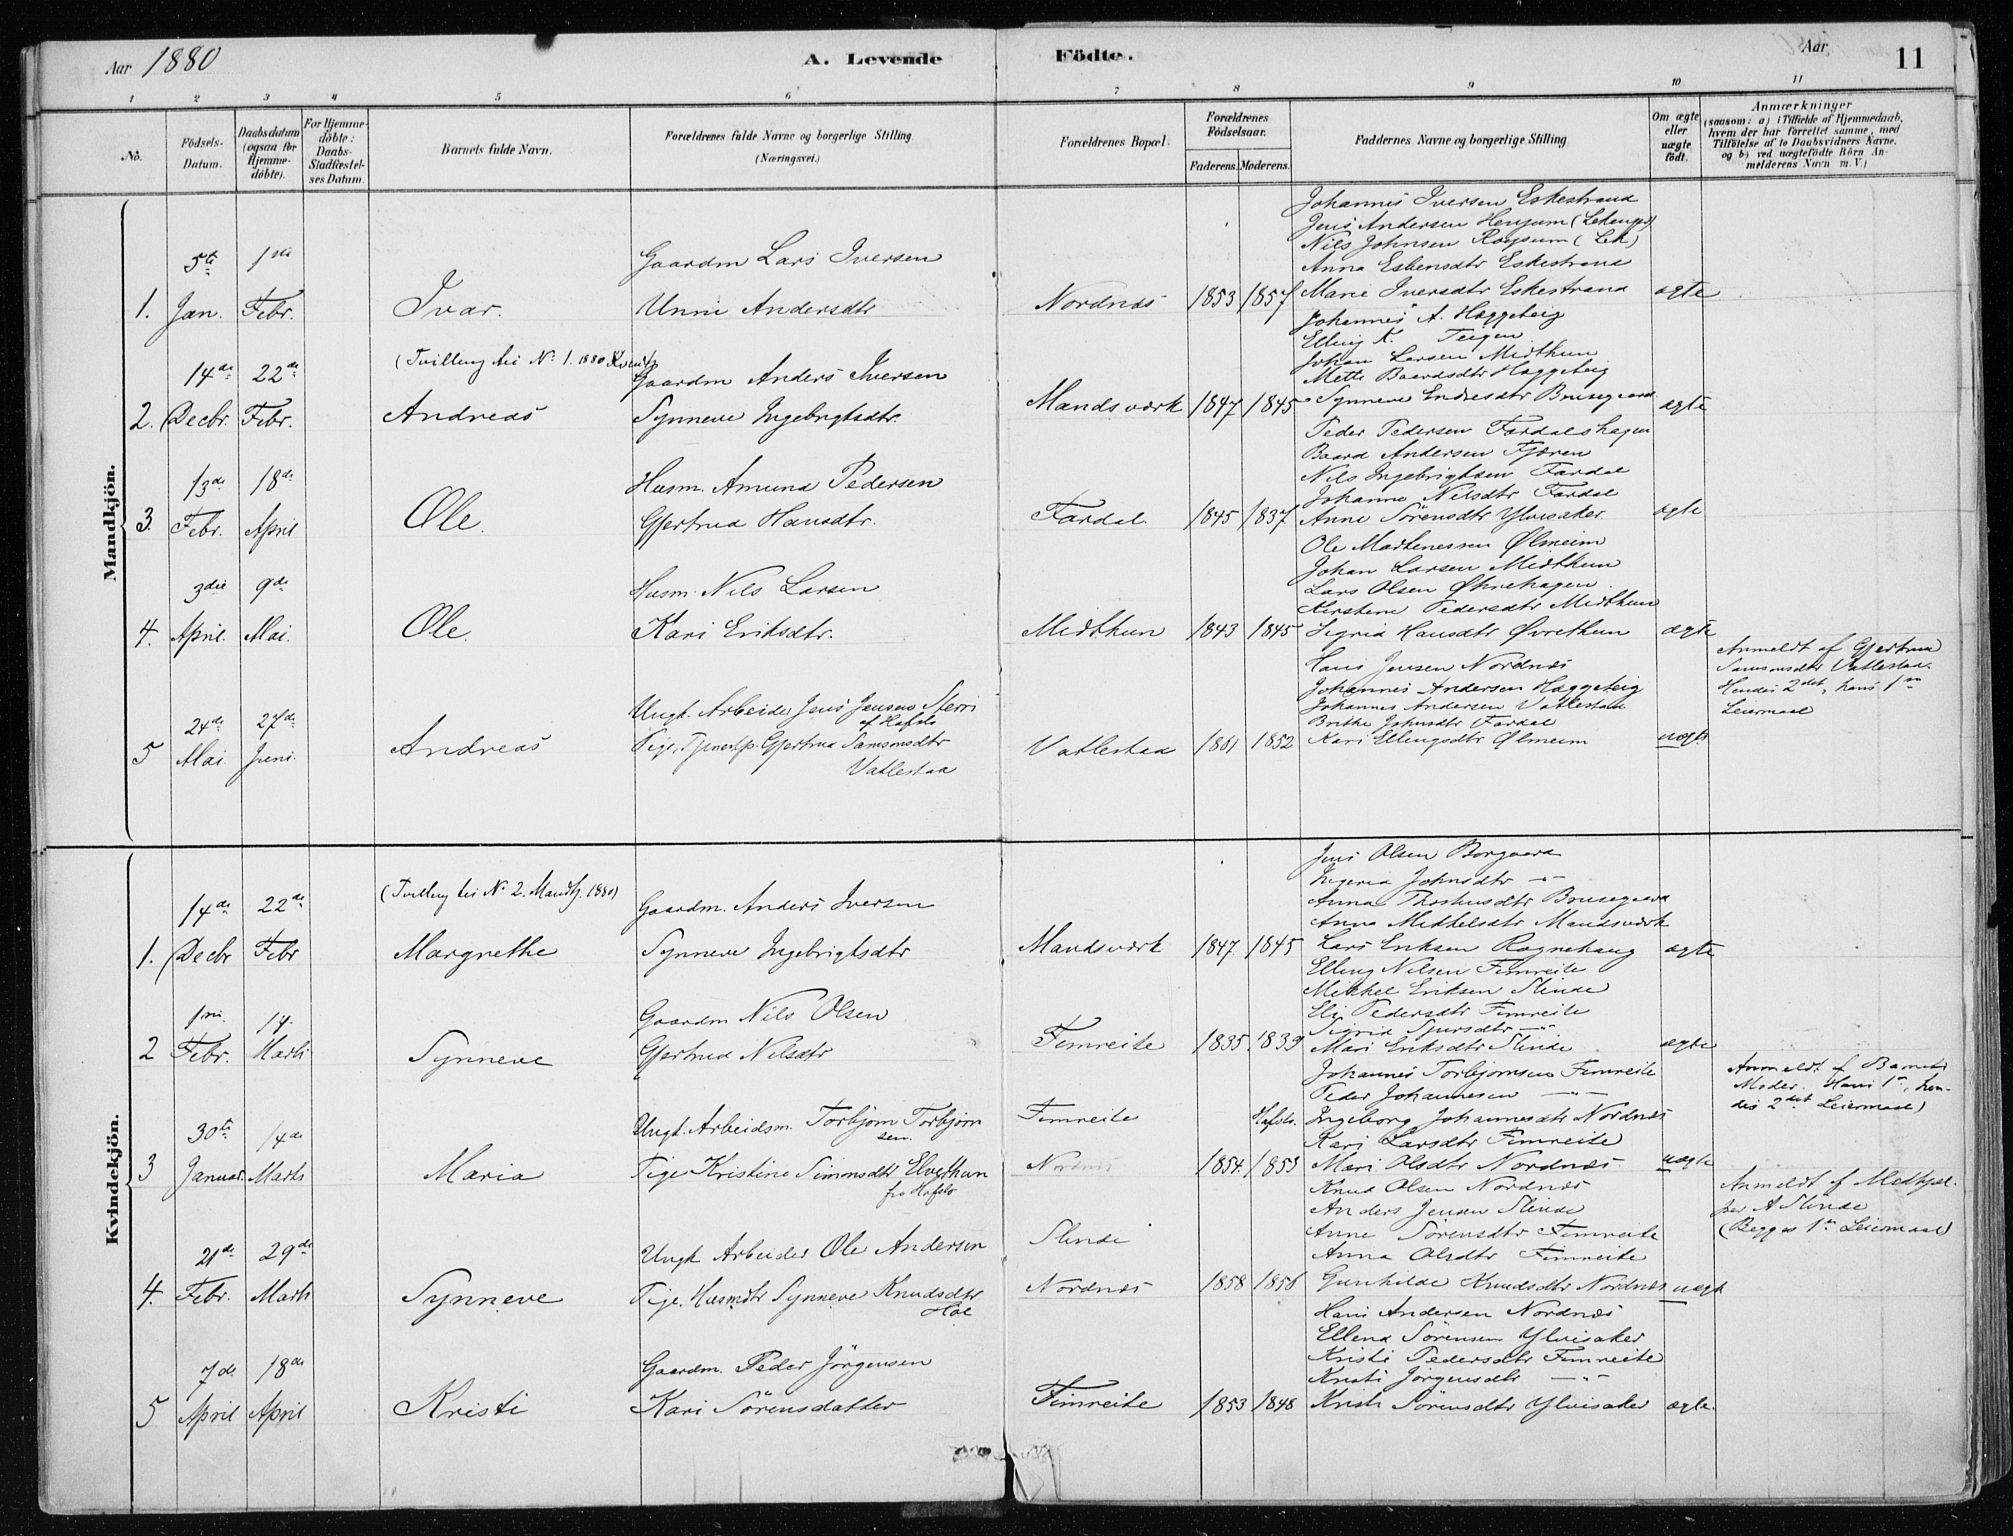 Aar 1880
A. Levende Födte.
Aar
11
1 2 3 4 5 6 7 8 9 10 11
No.
Födsels-Datum.
Daabsdatum (ogsaa for Hjemme-döbte).
For Hjemme-döbte: Daabs-Stadfæstel-ses Datum.
Barnets fulde Navn.
Forældrenes fulde Navne og borgerlige Stilling (Næringsvei.)
Forældrenes Bopæl.
Forældrenes Födselsaar.
Faderens. Moderens.
Faddernes Navne og borgerlige Stilling
Om ægte eller uægte födt.
Anmærkninger
(saasom: a) i Tilfælde af Hjemmedaab, hvem der har forrettet samme, med Tilföielse af to Daabsvidners Navne, og b) ved uægtefödte Börn An-melderens Navn m. V.)
Mandkjön.
1. 5te Jan. 1ste Febr.
Ivar.
Gaardm Lars Iversen
Unni Andersdtr
Nordnæs 1853 1857
Johannes Iversen Eskestrand
Jens Andersen Henjum
Nils Johnsen
Anna Esbensdtr Eskestrand
Marie Iversdtr Eskestrand
ægte
2. 14de Decbr. 22de Febr.
(Tvilling til No 1. 1880
Andreas
Gaardm Anders Iversen
Synneve Ingebrigtsdtr.
Mandsværk 1847 1845
Johannes A. Hæggeteig
Elling K. Teigen
Johan Larsen Midthun
Mette Baardsdtr Hæggeteig
Synneve Endresdtr Brusegaard
ægte
3. 13de Febr. 18de April
Ole.
Husm. Amund Pedersen
Gjertrud Hansdtr.
Fardal. 1845 1837
Peder Pedersen Fardalshagen
Baard Andersen Fjæren
Nils Ingebrigtsen Fardal
Johanne Nilsdtr Fardal
Anne Sörensdtr Ylvisaker
ægte
4. 3die April. 9de Mai.
Ole.
Husm. Nils Larsen
Kari Eriksdtr.
Midthun 1843 1845
Ole Marthenessen Ølmeim
Johan Larsen Midthun
Lars Olsen Øknehagen
Kirstene Pedersdtr Midthun
Sigrid Hansdtr Øvrethun
ægte
5 24de Mai. 27de Juni.
Andreas
Ungk. Arbeider Jens Jensen Sterri
af Hafslo
Pige, Gjertrud Samsonsdtr
Vatlestad
Vatlestad 1861 1852
Hans Jensen Nordnæs
Johannes Andersen Hæggeteig
Johannes Andersen Vatlestad
Brithe Johnsdtr Fardal
Kari Ellingsdtr Ølmeim
uægte
Anmeldt af Gjertrud
Samsonsdtr Vatlestad.
Hendes 2det, hans 1ste
Leiermaal
Kvindekjön.
1. 14de Decbr 22de Febr
(Tvilling til No 2. Mandkj. 1880)
Margrethe
Gaardm. Anders Iversen
Synneve Ingebrigtsdtr
Mandsværk 1847. 1845
Jens Olsen Borgaard
Ingerid Johnsdtr —"—
Anna Brusegaard
Anna Mikkelsdtr Mandsværk
Lars Eriksen Rognehaug
ægte
2 1ste Febr. 14 Marts
Synneve
Gaardm Nils Olsen
Gjertrud Nilsdtr
Fimreite 1835 1839
Elling Nilsen Fimreite
Mikkel Eriksen Slinde
Eli Pedersdtr Fimreite
Sigrid Sjursdtr —"—
Mari Eriksdtr Slinde
ægte
3 30te Januar. 14de Marts
Maria
Ungk. Arbeidsm. Torbjörn Torbjörn
sen.
Pige Kristine Simonsdtr Elvethun
fra Hafslo
Fimreite
Nordnæs
Hafslo.
1854. 1853
Johannes Torbjörnsen Fimreite
Peder Johannesen —"—
Ingeborg Johannesdtr Nordnæs
Kari Larsdtr Fimreite
Mari Olsdtr Nordnæs
uægte
Anmeldt af Barnets
Moder. Hans 1ste, hen-
des 2det Leiermaal)
4. 21de Febr. 29de Marts
Synneve
Ungk Arbeider Ole Andersen
Pige. Husmdtr Synneve Knudsdtr
Slinde
Nordnæs 1858 1856
Knud Olsen Nordnæs
Anders Jensen Slinde
Anne Sörensdtr Fimreite
Anna Olsdtr Fimreite
Gunhilde Knudsdtr Nordnæs
uægte
Anmeldt af Medhjæl-
per A Slinde
(Begges 1ste Leiermaal)
5 7de April 18de April
Kristi
Gaardm. Peder Jörgensen
Kari Sörensdatter
Fimreite 1853 1848
Hans Andersen Nordnæs
Ellend Sörensen Ylvisaker
Kristi Pedersdtr Fimreite
Kristi Jörgensdtr —"—
Kristi Sörensdtr Ylvisaker
ægte.